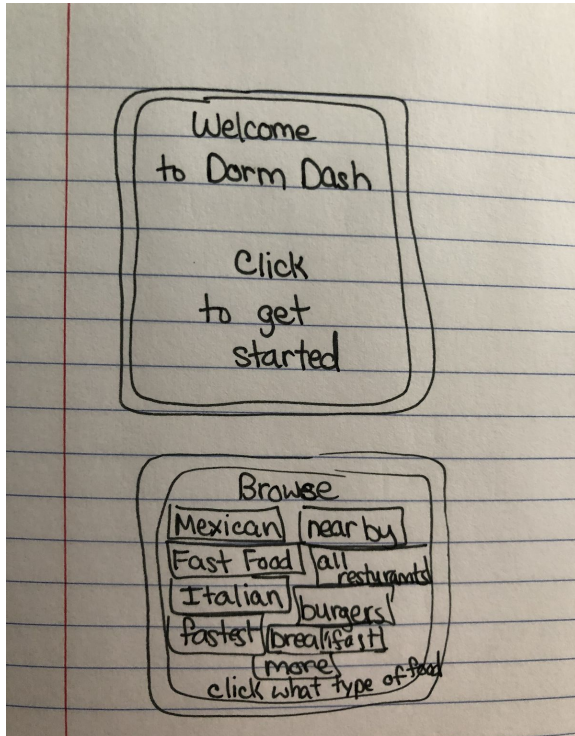 Welcome
to Dorm Dash
Click
to get
started
Browse
Mexican nearby
Fast Food all
resturants
Italian burgers
fastest breakfast
more
click what type of food